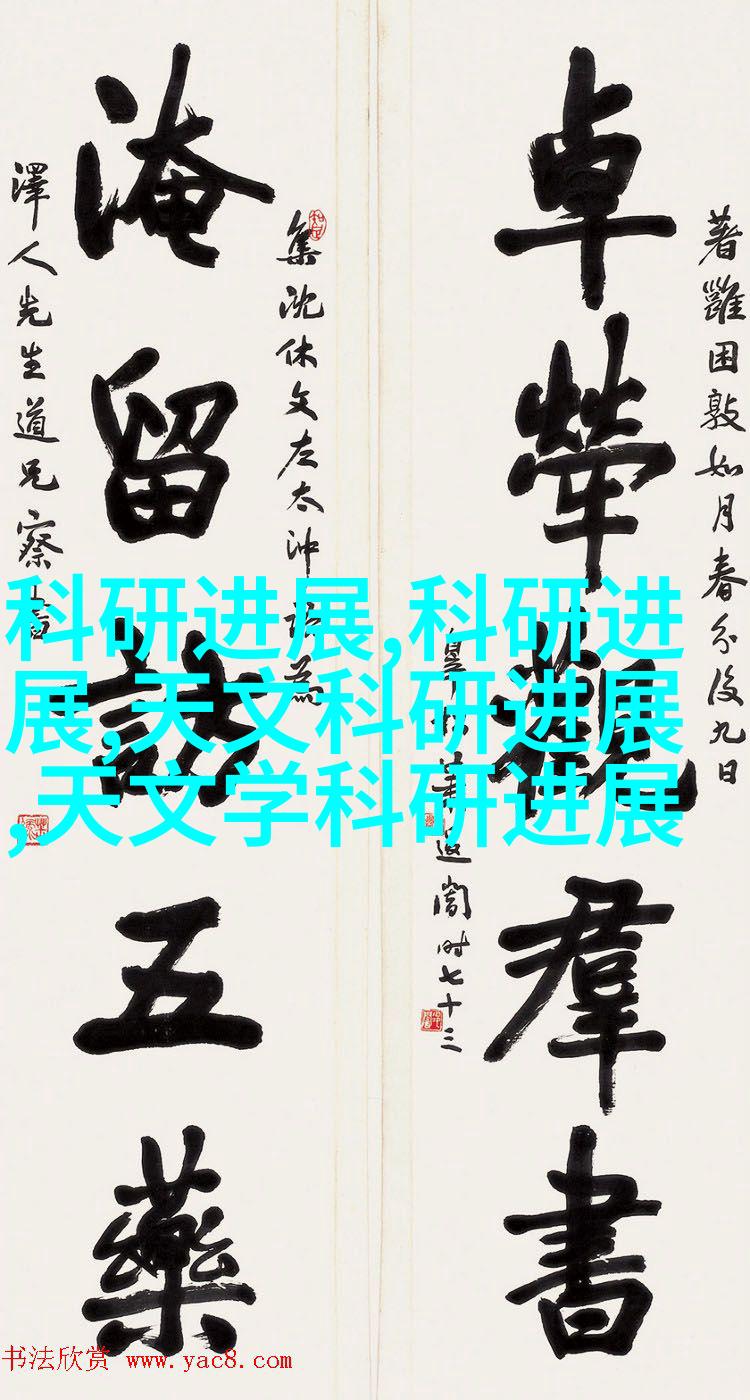 著雝困敦如月春分後九日
卓犖觀羣書
退闇时七十三
集沈休文左太沖
淹留訪五藥
澤人先生道兄察書
科研进展,科研进
展,天文科研进展
,天文学科研进展
书法欣赏 www.yac8.com